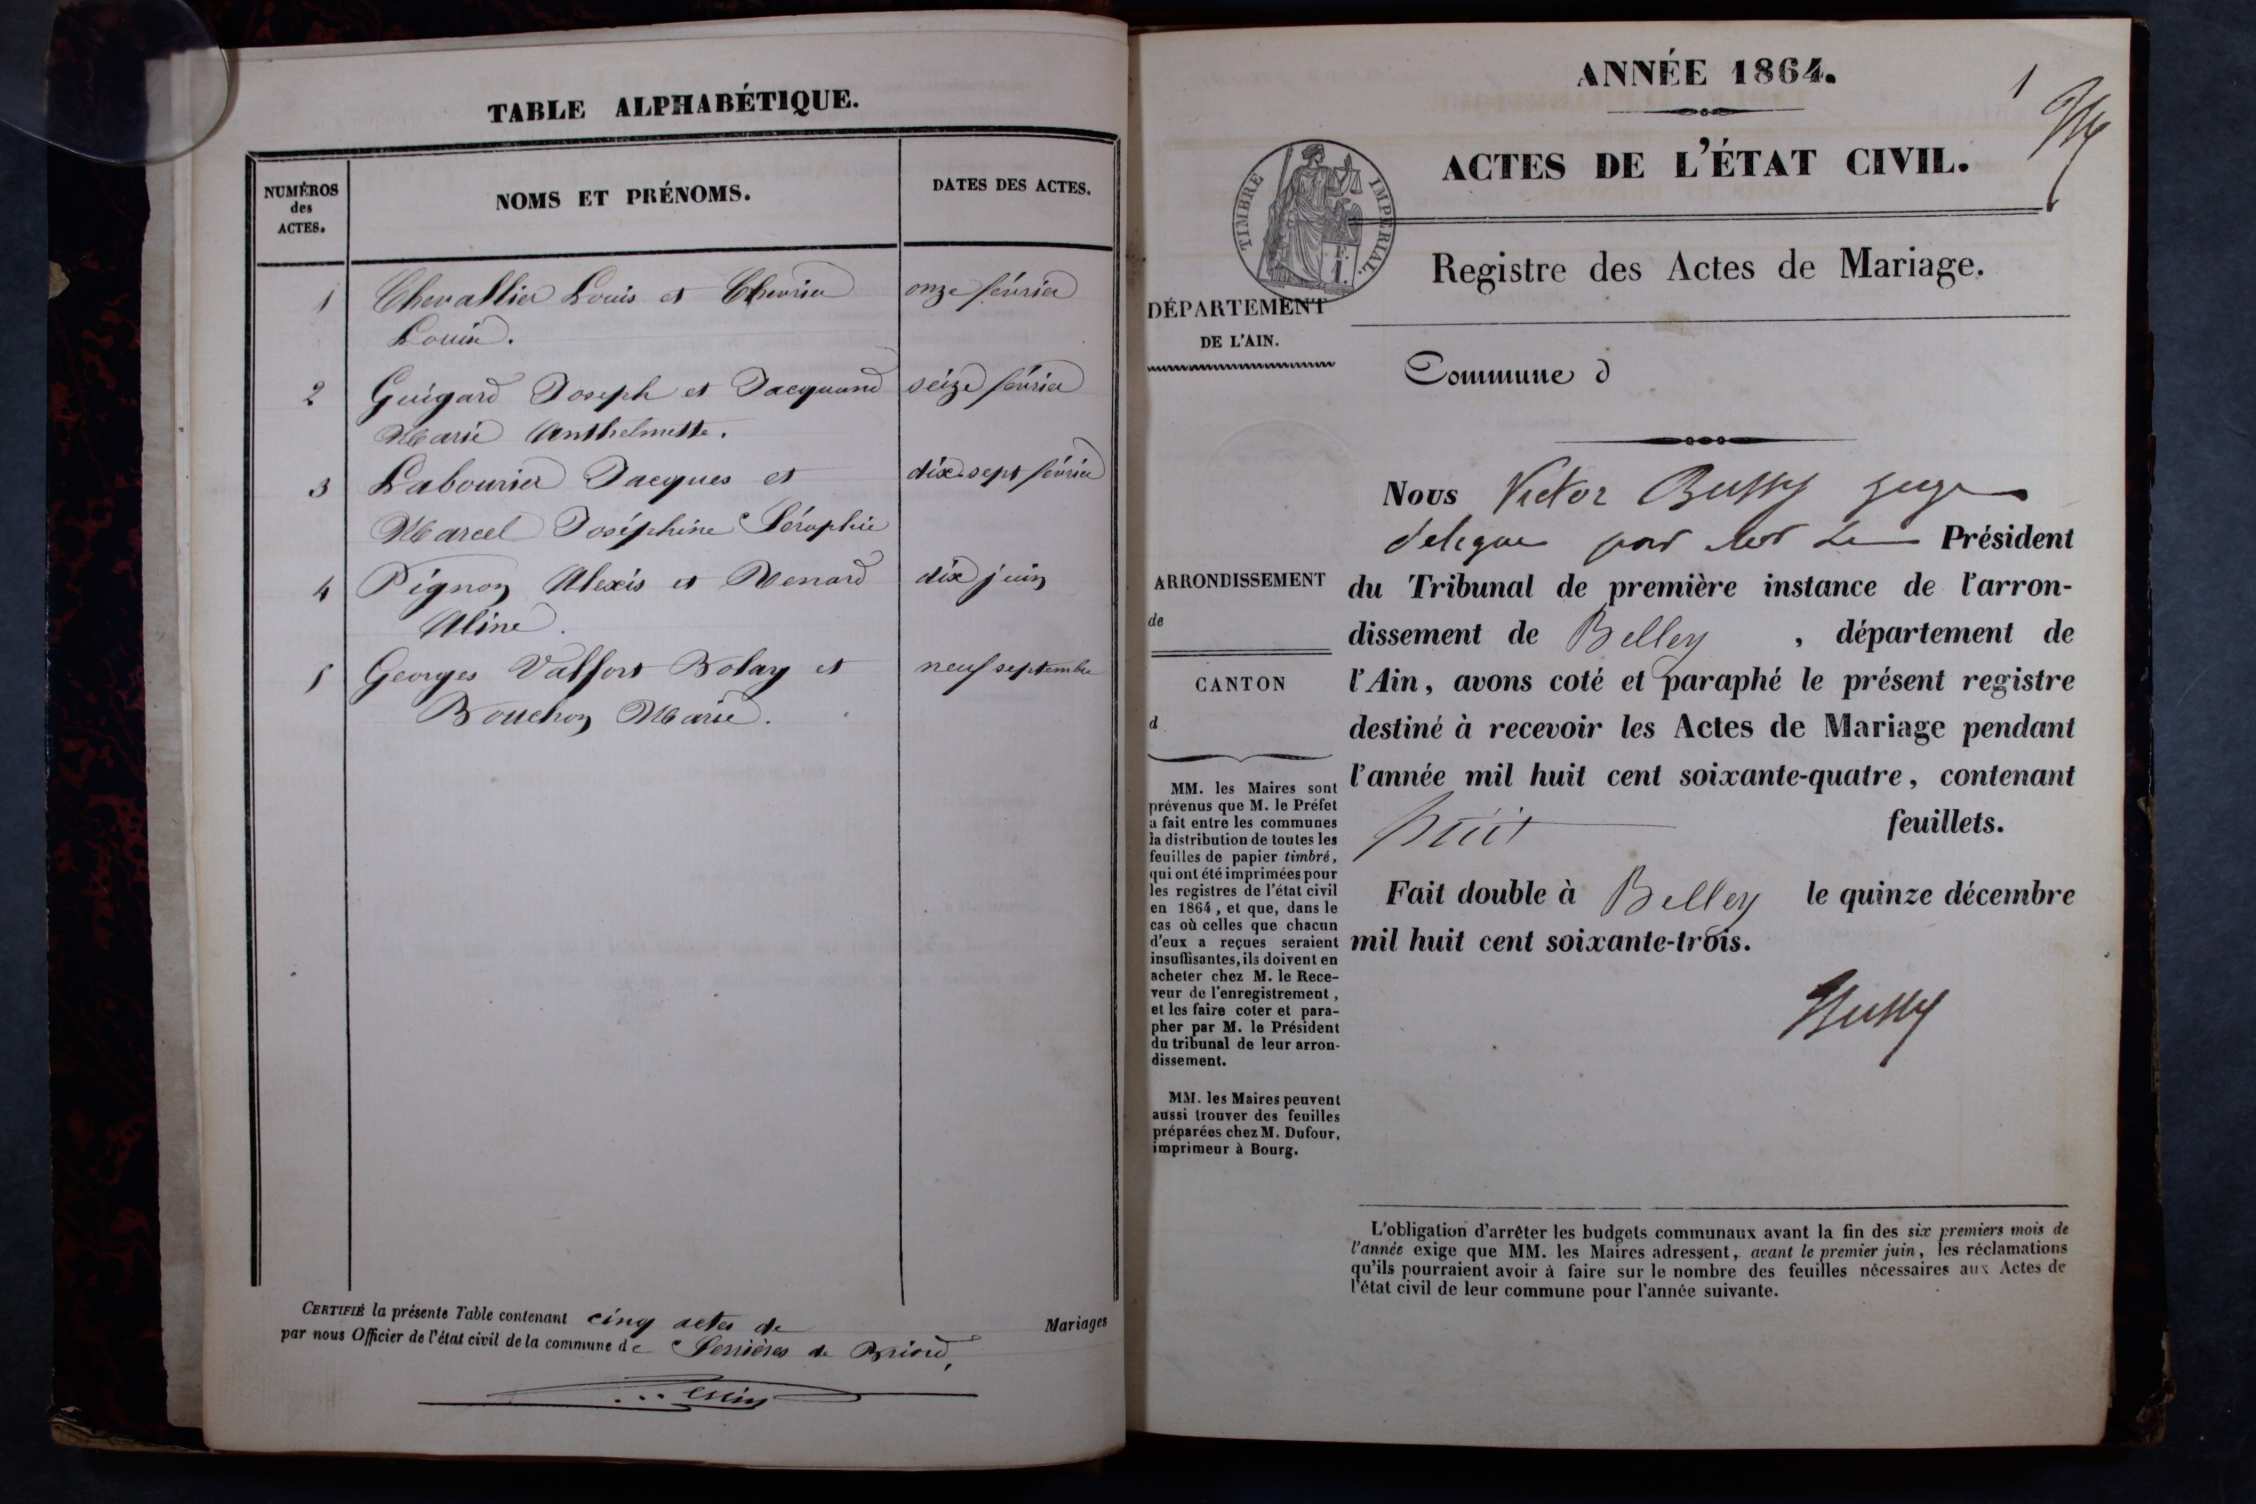 TABLE ALPHABÉTIQUE.
NUMÉROS
des
ACTES.
NOMS ET PRÉNOMS.
DATES DES ACTES.
1 Chevallier Louis et Chevrier onze février
Louise.
2 Guigard Joseph et Jacquand seize février
Marie Anthelmette.
3 Labourier Jacques et dix-sept février
Marcel Joséphine Séraphie
4 Pignon Alexis et Renard dix juin
Aline.
5 Georges Valfort Bolay et neuf septembre
Bouchon Marie.
CERTIFIÉ la présente Table contenant cinq actes de Mariages
par nous Officier de l'état civil de la commune de Serrières de Briord,
ANNÉE 1864.
1
ACTES DE L'ÉTAT CIVIL.
TIMBRE IMPÉRIAL.
Registre des Actes de Mariage.
DÉPARTEMENT
DE L'AIN.
Commune d
ARRONDISSEMENT
de
CANTON
d
MM. les Maires sont
prévenus que M. le Préfet
a fait entre les communes
la distribution de toutes les
feuilles de papier timbré,
qui ont été imprimées pour
les registres de l'état civil
en 1864, et que, dans le
cas où celles que chacun
d'eux a reçues seraient
insuffisantes, ils doivent en
acheter chez M. le Rece-
veur de l'enregistrement,
et les faire coter et para-
pher par M. le Président
du tribunal de leur arron-
dissement.
MM. les Maires peuvent
aussi trouver des feuilles
préparées chez M. Dufour,
imprimeur à Bourg.
Nous Victor Bussy juge
delegue par Président
du Tribunal de première instance de l'arron-
dissement de Belley, département de
l'Ain, avons coté et paraphé le présent registre
destiné à recevoir les Actes de Mariage pendant
l'année mil huit cent soixante-quatre, contenant
huit feuillets.
Fait double à Belley le quinze décembre
mil huit cent soixante-trois.
Bussy
L'obligation d'arrêter les budgets communaux avant la fin des six premiers mois de
l'année exige que MM. les Maires adressent, avant le premier juin, les réclamations
qu'ils pourraient avoir à faire sur le nombre des feuilles nécessaires aux Actes de
l'état civil de leur commune pour l'année suivante.